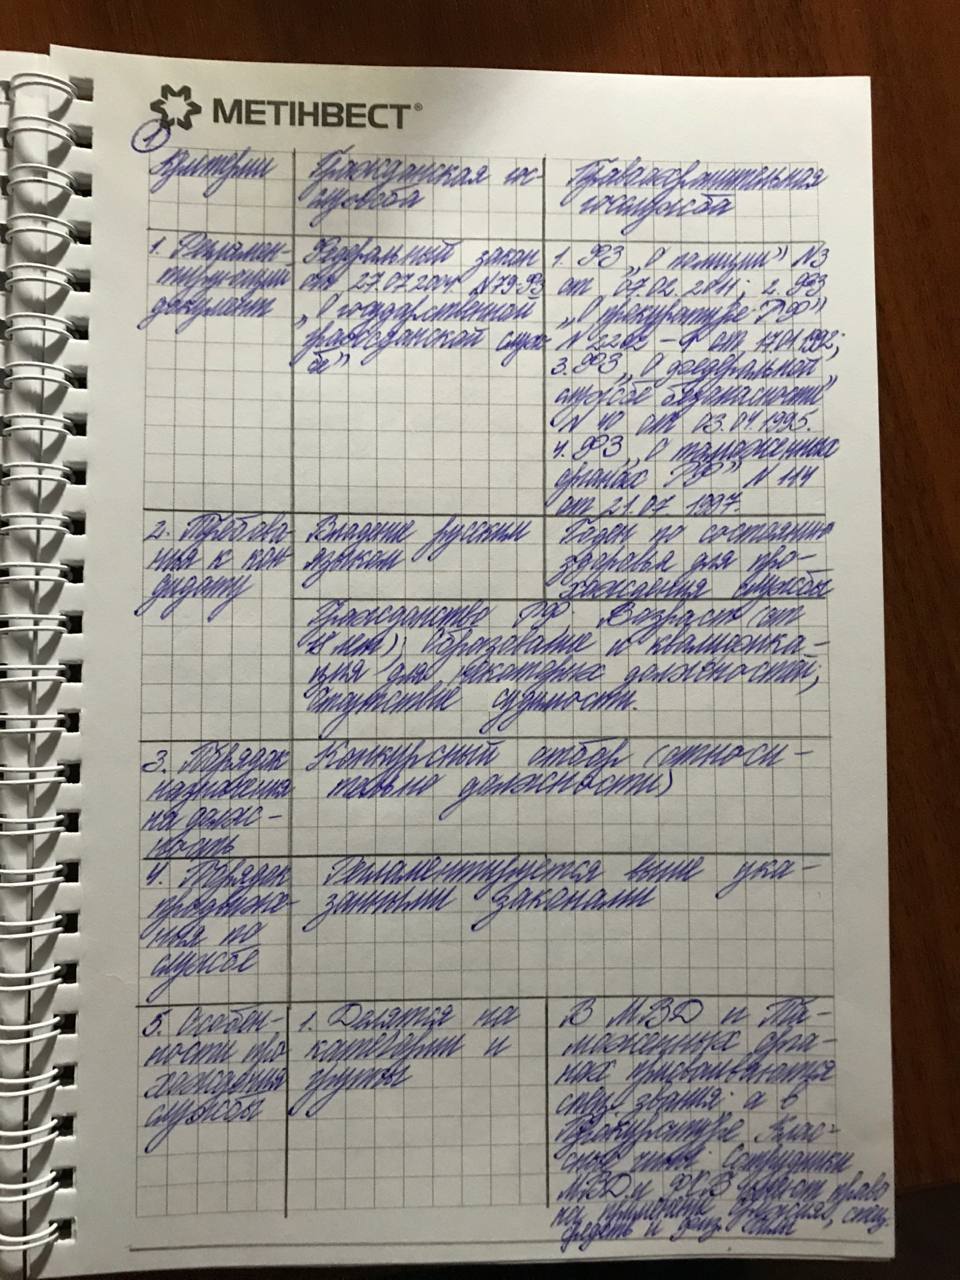 МЕТІНВЕСТ®
1
Критерии
Гражданская го-
служба
Правоохранительная
госслужба
1. Регламен-
тирующий
документ
Федеральный закон
от 27.07.2004 №79-ФЗ
„О государственной
гражданской служ-
бе"
1. ФЗ „О полиции" №3
от 07.02.2011; 2. ФЗ
„О прокуратуре РФ"
N 2202 – Ф от 17.01.1992;
3. ФЗ „О федеральной
службе безопасности"
N 40 от 03.04.1995.
4. ФЗ „О таможенных
органах РФ" N 114
от 21.07 1997.
2. Требова-
ния к кан
дидату
Владение русским
языком
Годен по состоянию
здоровья для про-
хождения службы
Гражданство РФ. Возраст (от
18 лет); Образование и квалифика-
ция для некоторых должностей;
Отсутствие судимости.
3. Порядок
назначения
на долж-
ность
Конкурсный отбор (относи-
тельно должности)
4. Порядок
продвиже-
ния по
службе
Регламентируется выше ука-
занными законами
5. Особен-
ности про
хождения
службы
1. Делятся на
категории и
группы
В МВД и Та-
моженных орга-
нах присваиваются
спец. звания: а в
Прокуратуре Клас-
сные чины. Сотрудники
МВД и ФСБ имеют право
на применение оружия, спец.
средств и физ. силы